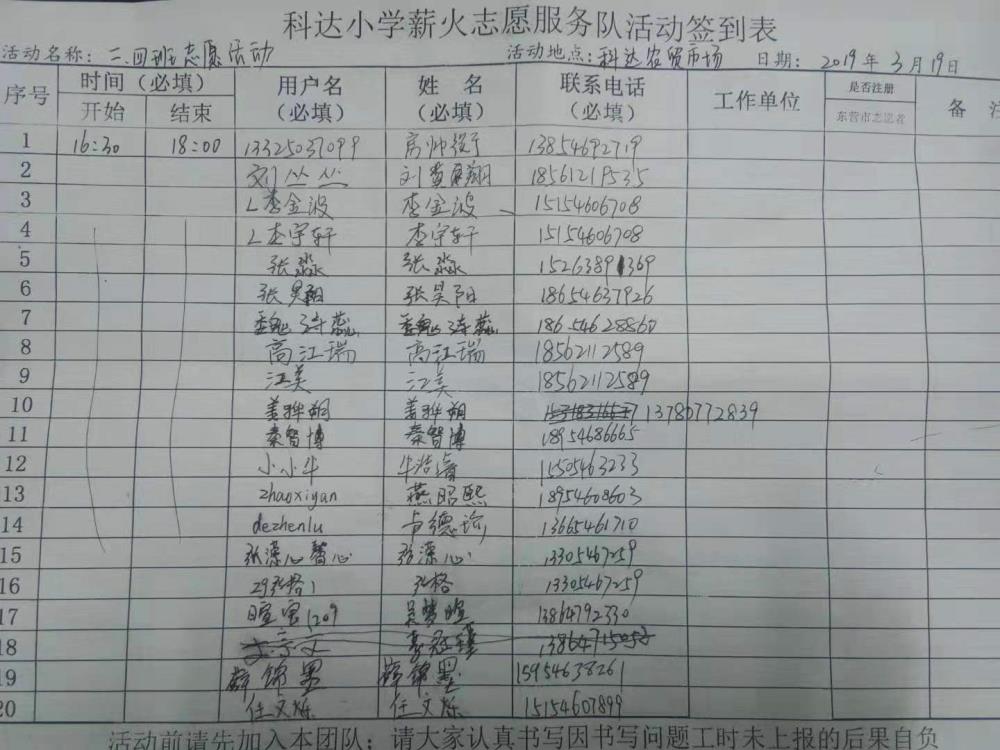 科达小学薪火志愿服务队活动签到表
活动名称：二.四班志愿活动 活动地点：科达农贸市场 日期：2019年3月19日
序号 时间（必填） 用户名（必填） 姓 名（必填） 联系电话（必填） 工作单位 是否注册 备 注
开始 结束 东营市志愿者
1 16:30 18:00 13325037099 房帅 13854692719
2 刘丛丛 刘 翔 18561219535
3 L李金波 李金波 15154606708
4 L李宇轩 李宇轩 15154606708
5 张淼 张淼 15263891369
6 张昊阳 张昊阳 18654637926
7 魏诗蕊 魏诗蕊 18654628860
8 高江瑞 高江瑞 18562112589
9 江美 江美 18562112589
10 姜骅朔 姜骅朔 13780772839
11 秦智博 秦智博 18954686665
12 小小牛 牛浩 11505463233
13 zhaoxiyan 燕昭熙 18954608603
14 dezhenlu 德瑜 13665461710
15 张濠心智心 张濠心 13305467259
16 29张格1 张格 13305467259
17 暄 1209 吴梦暄 13864792330
18
19 薛锦墨 薛锦墨 15954638261
20 任文烁 任文烁 15154607899
活动前请先加入本团队；请大家认真书写因书写问题工时未上报的后果自负